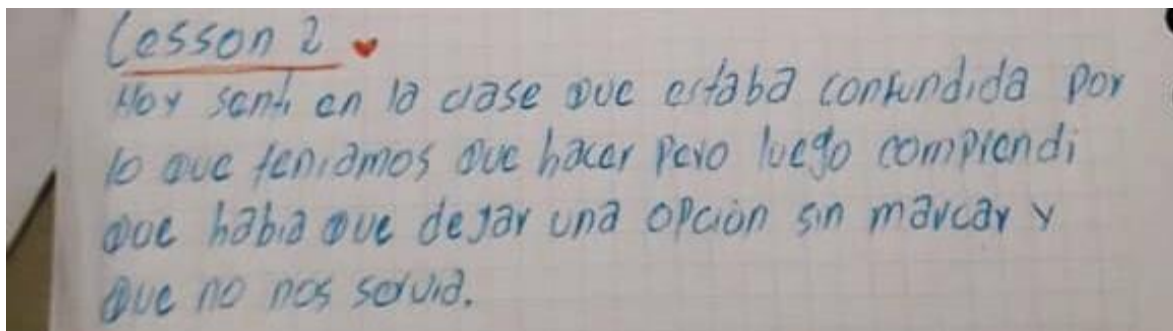 Lesson 2
Hoy sentí en la clase que estaba confundida por
lo que teniamos que hacer pero luego comprendi
que habia que dejar una opción sin marcar y
que no nos servia.